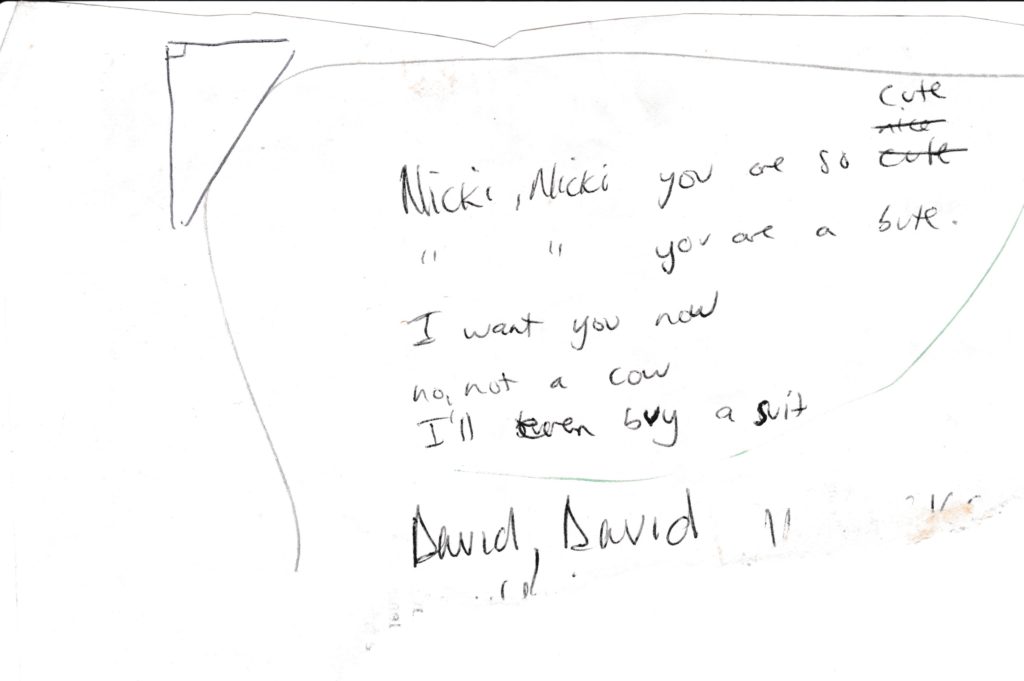 Cute
nice
Nicki, Nicki you are so cute
" " you are a bute.
I want you now
no, not a cow
I'll even buy a suit
David, David